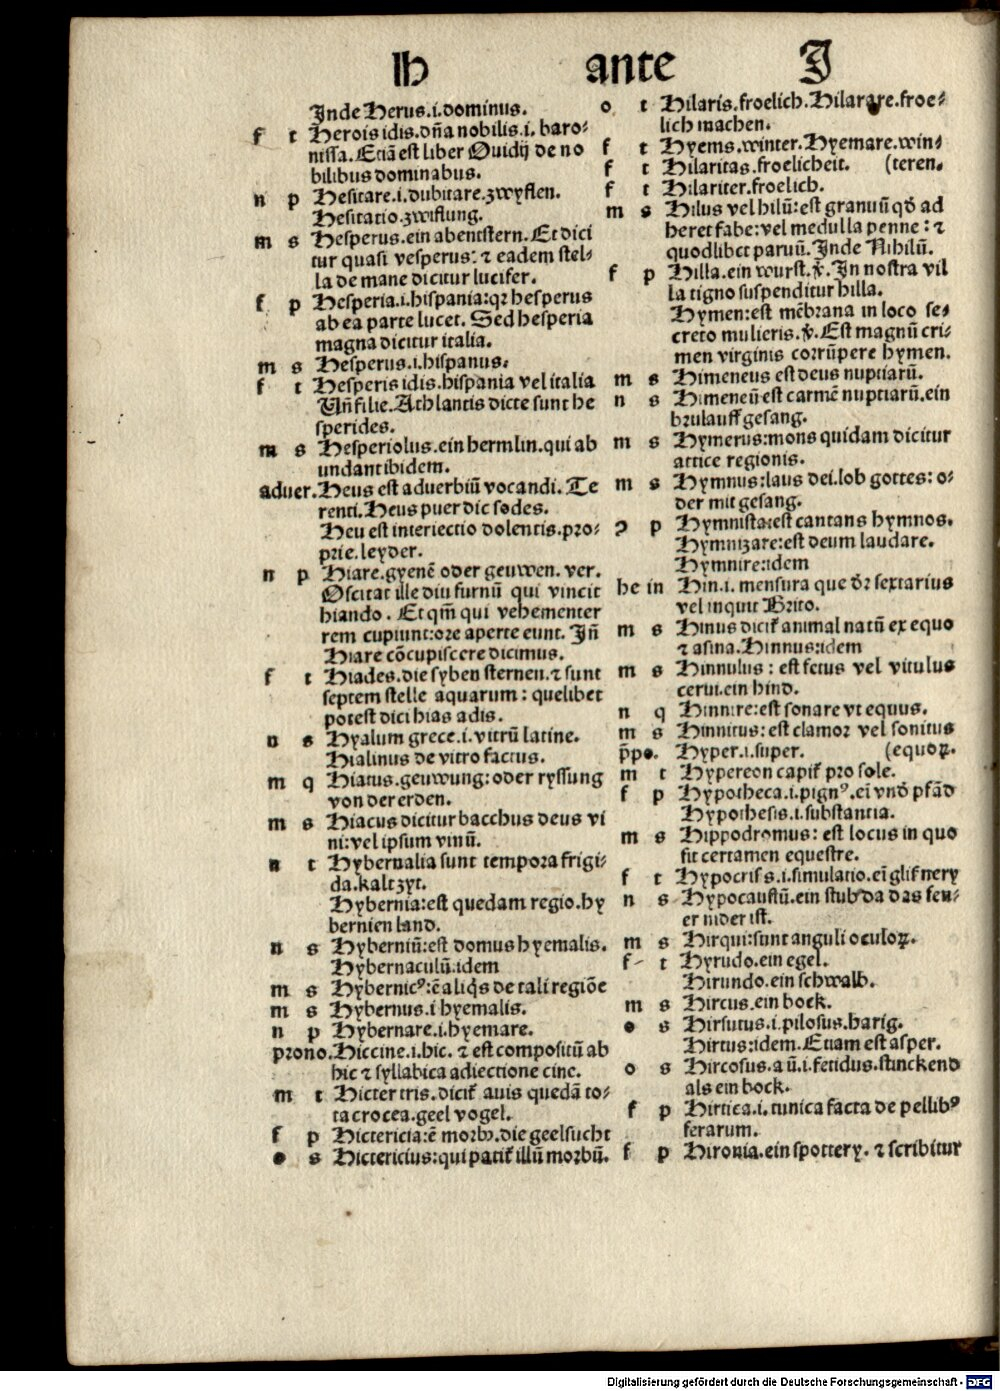 H ante J
Inde Herus.i.dominus.
f t Herois idis.dña nobilis.i. baro⸗
nissa.Etiã est liber Ouidij de no
bilibus dominabus.
n p Hesitare.i.dubitare.zwyflen.
Hesitatio.zwiflung.
m s Hesperus.ein abentstern.Et dici
tur quasi vesperus: ⁊ eadem stel⸗
la de mane dicitur lucifer.
f p Hesperia.i.hispania:qꝛ hesperus
ab ea parte lucet. Sed hesperia
magna dicitur italia.
m s Hesperus.i.hispanus.
f t Hesperis idis.hispania vel italia
Uñ filie.Athlantis dicte sunt he
sperides.
m s Hesperiolus.ein hermlin.qui ab
undant ibidem.
aduer. Heus est aduerbiũ vocandi. Te
renti.Heus puer dic sodes.
Heu est interiectio dolentis.pro⸗
prie.leyder.
n p Hiare.gyenẽ oder geuwen. ver.
Oscitat ille diu furnũ qui vincit
hiando. Et qm̃ qui vehementer
rem cupiunt:ore aperte eunt. Iñ
Hiare cõcupiscere dicimus.
f t Hiades.die syben sternen.⁊ sunt
septem stelle aquarum: quelibet
potest dici hias adis.
n s Hyalum grece.i.vitrũ latine.
Hialinus de vitro factus.
m q Hiatus.geuwung:oder ryssung
von der erden.
m s Hiacus dicitur bacchus deus vi
ni:vel ipsum vinũ.
n t Hybernalia sunt tempora frigi⸗
da.kalt zyt.
Hybernia:est quedam regio.hy
bernien land.
n s Hyberniũ:est domus hyemalis.
Hybernaculũ:idem
m s Hybernicꝰ:ẽ aliq̃s de tali regiõe
m s Hybernus.i hyemalis.
n p Hybernare.i.hyemare.
prono. Hiccine.i.hic. ⁊ est compositũ ab
hic ⁊ syllabica adiectione cine.
m t Hicter tris.dicit̃ auis quedã to⸗
ta crocea.geel vogel.
f p Hictericia:ẽ morb.die geelsucht
o s Hictericius:qui patit̃ illũ morbũ.
o t Hilaris.froelich.Hilarare.froe⸗
lich machen.
f t Hyems.winter.Hyemare.win⸗
f t Hilaritas.froelicheit. (teren.
f t Hilariter.froelich.
m s Hilus vel hilũ:est granuũ qd̕ ad
heret fabe:vel medulla penne: ⁊
quodlibet paruũ.Inde Nihilũ.
f p Hilla.ein wurst.ꝟ.In nostra vil
la tigno suspenditur hilla.
Hymen:est mẽbrana in loco se⸗
creto mulieris.ꝟ.Est magnũ cri⸗
men virginis corrũpere hymen.
m s Himeneus est deus nuptiarũ.
n s Himeneũ est carmẽ nuptiarũ.ein
brulauff gesang.
m s Hymerus:mons quidam dicitur
attice regionis.
m s Hymnus:laus dei.lob gottes: o⸗
der mit gesang.
ɔ p Hymnista:est cantans hymnos.
Hymnizare:est deum laudare.
Hymnire:idem
he in Hin.i. mensura que dr̃ sextarius
vel inquit Brito.
m s Hinus dicit̃ animal natũ ex equo
⁊ asina.Hinnus:idem
m s Hinnulus: est fetus vel vitulus
cerui.ein hind.
n q Hinnire:est sonare vt equus.
m s Hinnitus: est clamor vel sonitus
p̃po. Hyper.i.super. (equoꝝ.
m t Hypereon capit̃ pro sole.
f p Hypotheca.i.pignꝰ.eĩ vnd̕ pfãd
Hypothesis.i.substantia.
m s Hippodromus: est locus in quo
fit certamen equestre.
f t Hypocrisis.i.simulatio.eĩ glisnery
n s Hypocaustũ.ein stub da das feu⸗
er inder ist.
m s Hirqui:sunt anguli oculoꝝ.
f t Hyrudo.ein egel.
Hirundo.ein schwalb.
m s Hircus.ein bock.
o s Hirsutus.i.pilosus.harig.
Hirtus:idem.Etiam est asper.
o s Hircosus.a ũ.i.fetidus.stinckend
als ein bock.
f p Hirtica.i.tunica facta de pellibꝰ
ferarum.
f p Hironia.ein spottery. ⁊ scribitur
Digitalisierung gefördert durch die Deutsche Forschungsgemeinschaft - DFG